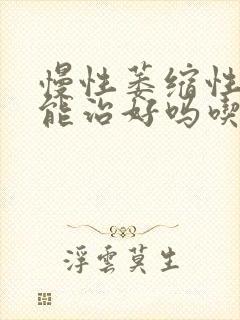 慢性萎缩性
能治好吗喫
浮雲莫生